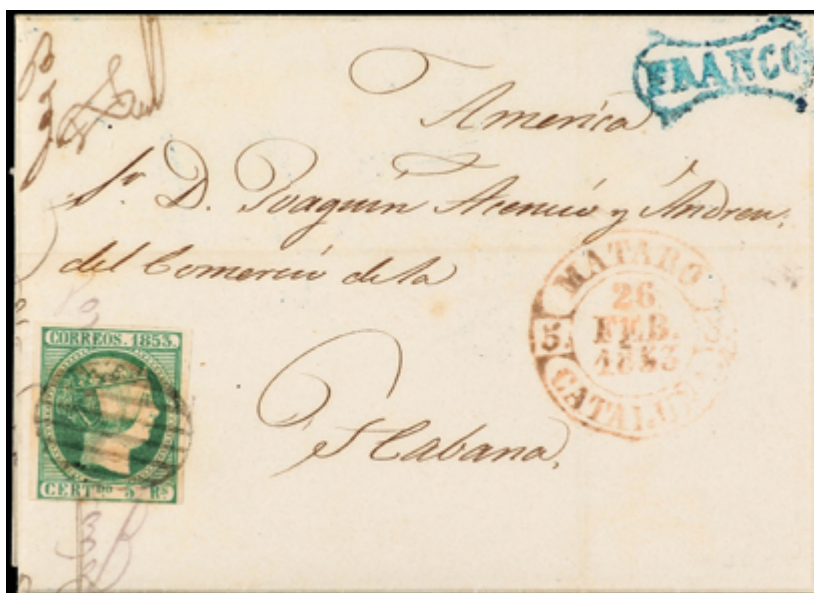 FRANCO
America
Sr. D. Joaquin Atencio y Andreu.
del Comercio de la
Habana.
MATARO
26
FEB.
1853
5.
CATALUÑA
CORREOS. 1853.
CERTDO 5 RS